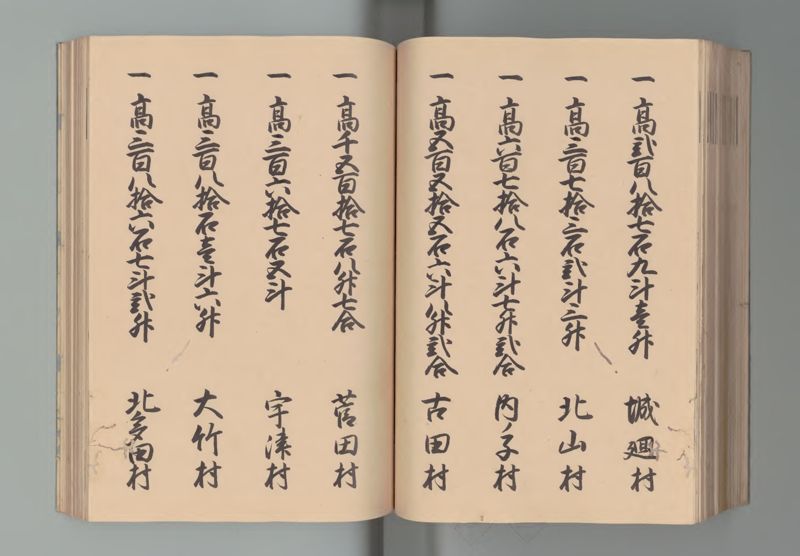 一 高弐百八拾七石九斗壱升 城廻村
一 高三百七拾三石弐斗三升 北山村
一 高六百七拾八石六斗七升弐合 内ノ子村
一 高五百五拾五石六斗八升弐合 古田村
一 高千五百拾七石八升七合 菅田村
一 高三百六拾七石五斗 宇津村
一 高三百八拾石壱斗六升 大竹村
一 高三百八拾六石七斗弐升 北多田村